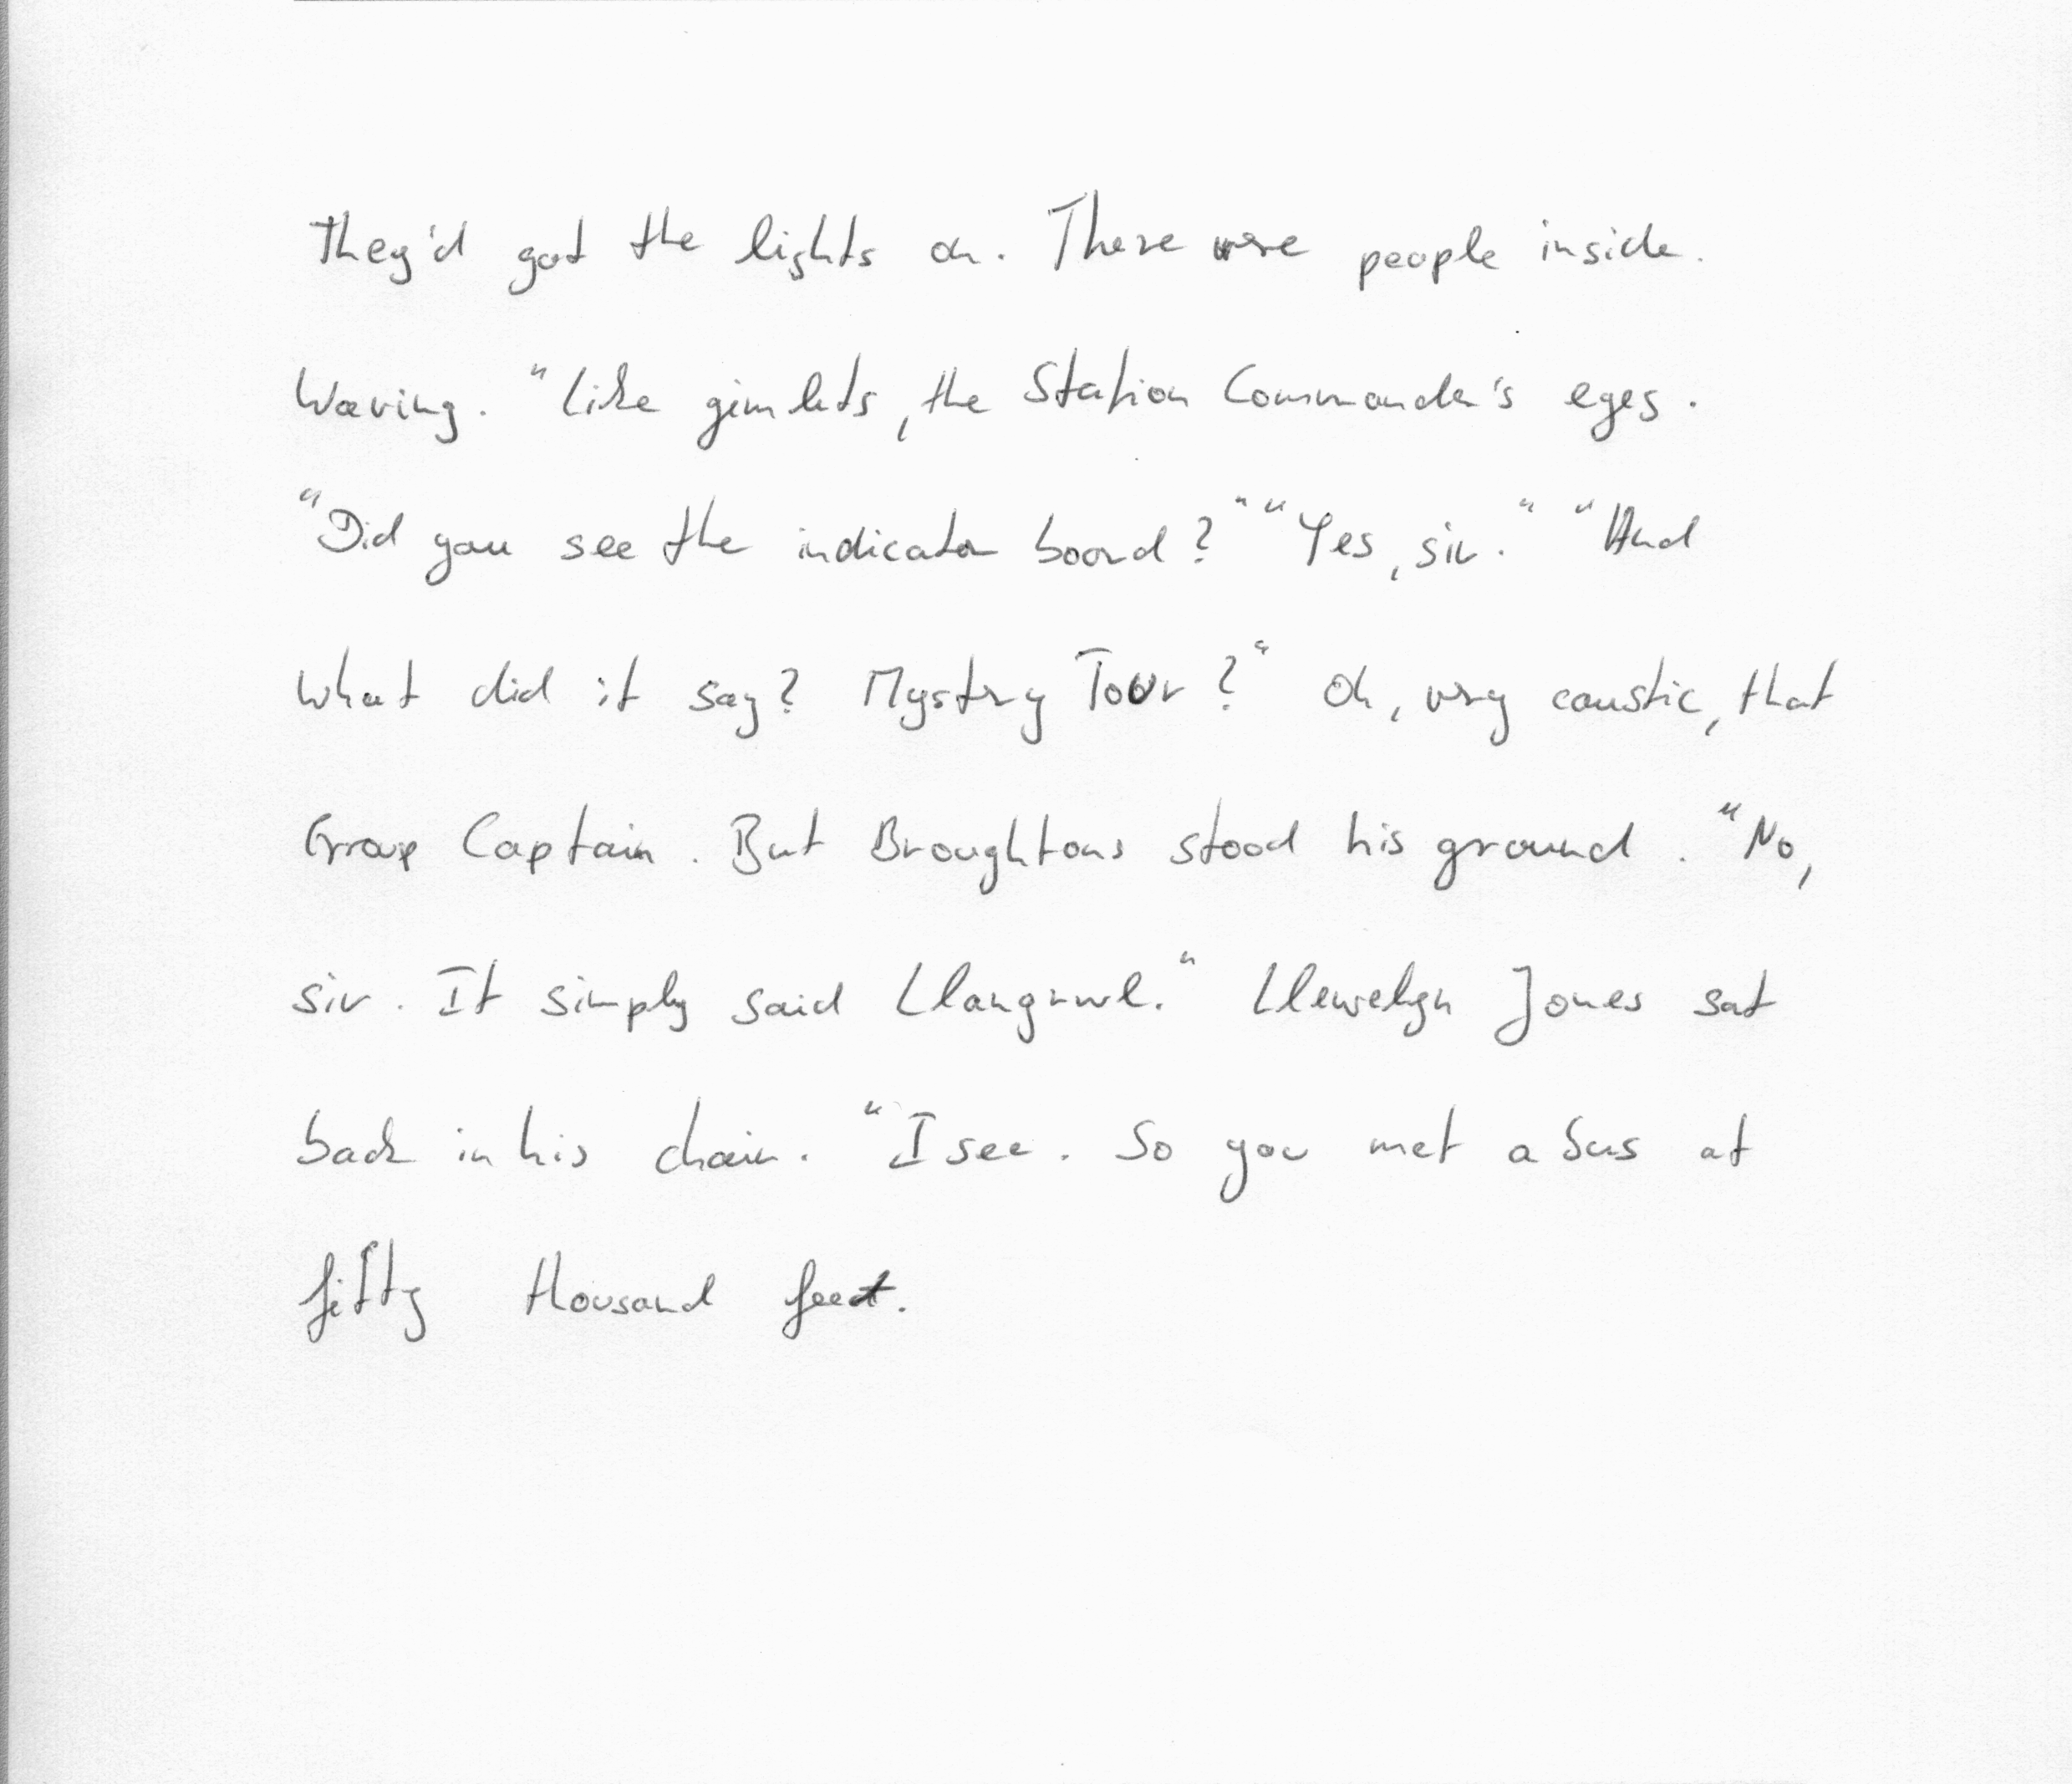 They'd got the lights on. There were people inside.
Waving. "Like gimlets, the Station Commander's eyes.
"Did you see the indicator board?" "Yes, sir." "And
what did it say? Mystery Tour?" Oh, very caustic, that
Group Captain. But Broughtons stood his ground. "No,
sir. It simply said Llangrwl." Llewelyn Jones sat
back in his chair. "I see. So you met a bus at
fifty thousand feet.